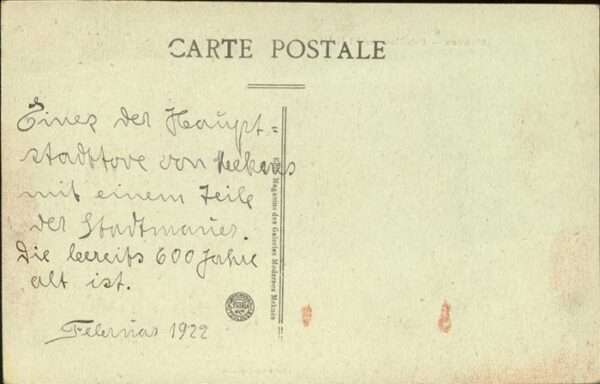 CARTE POSTALE
Eines der Haupt=
stadttore von Mekenes
mit einem Teile
der Stadtmauer.
Die bereits 600 Jahre
alt ist.
Februar 1922
Magasins des Galeries Modernes Meknès